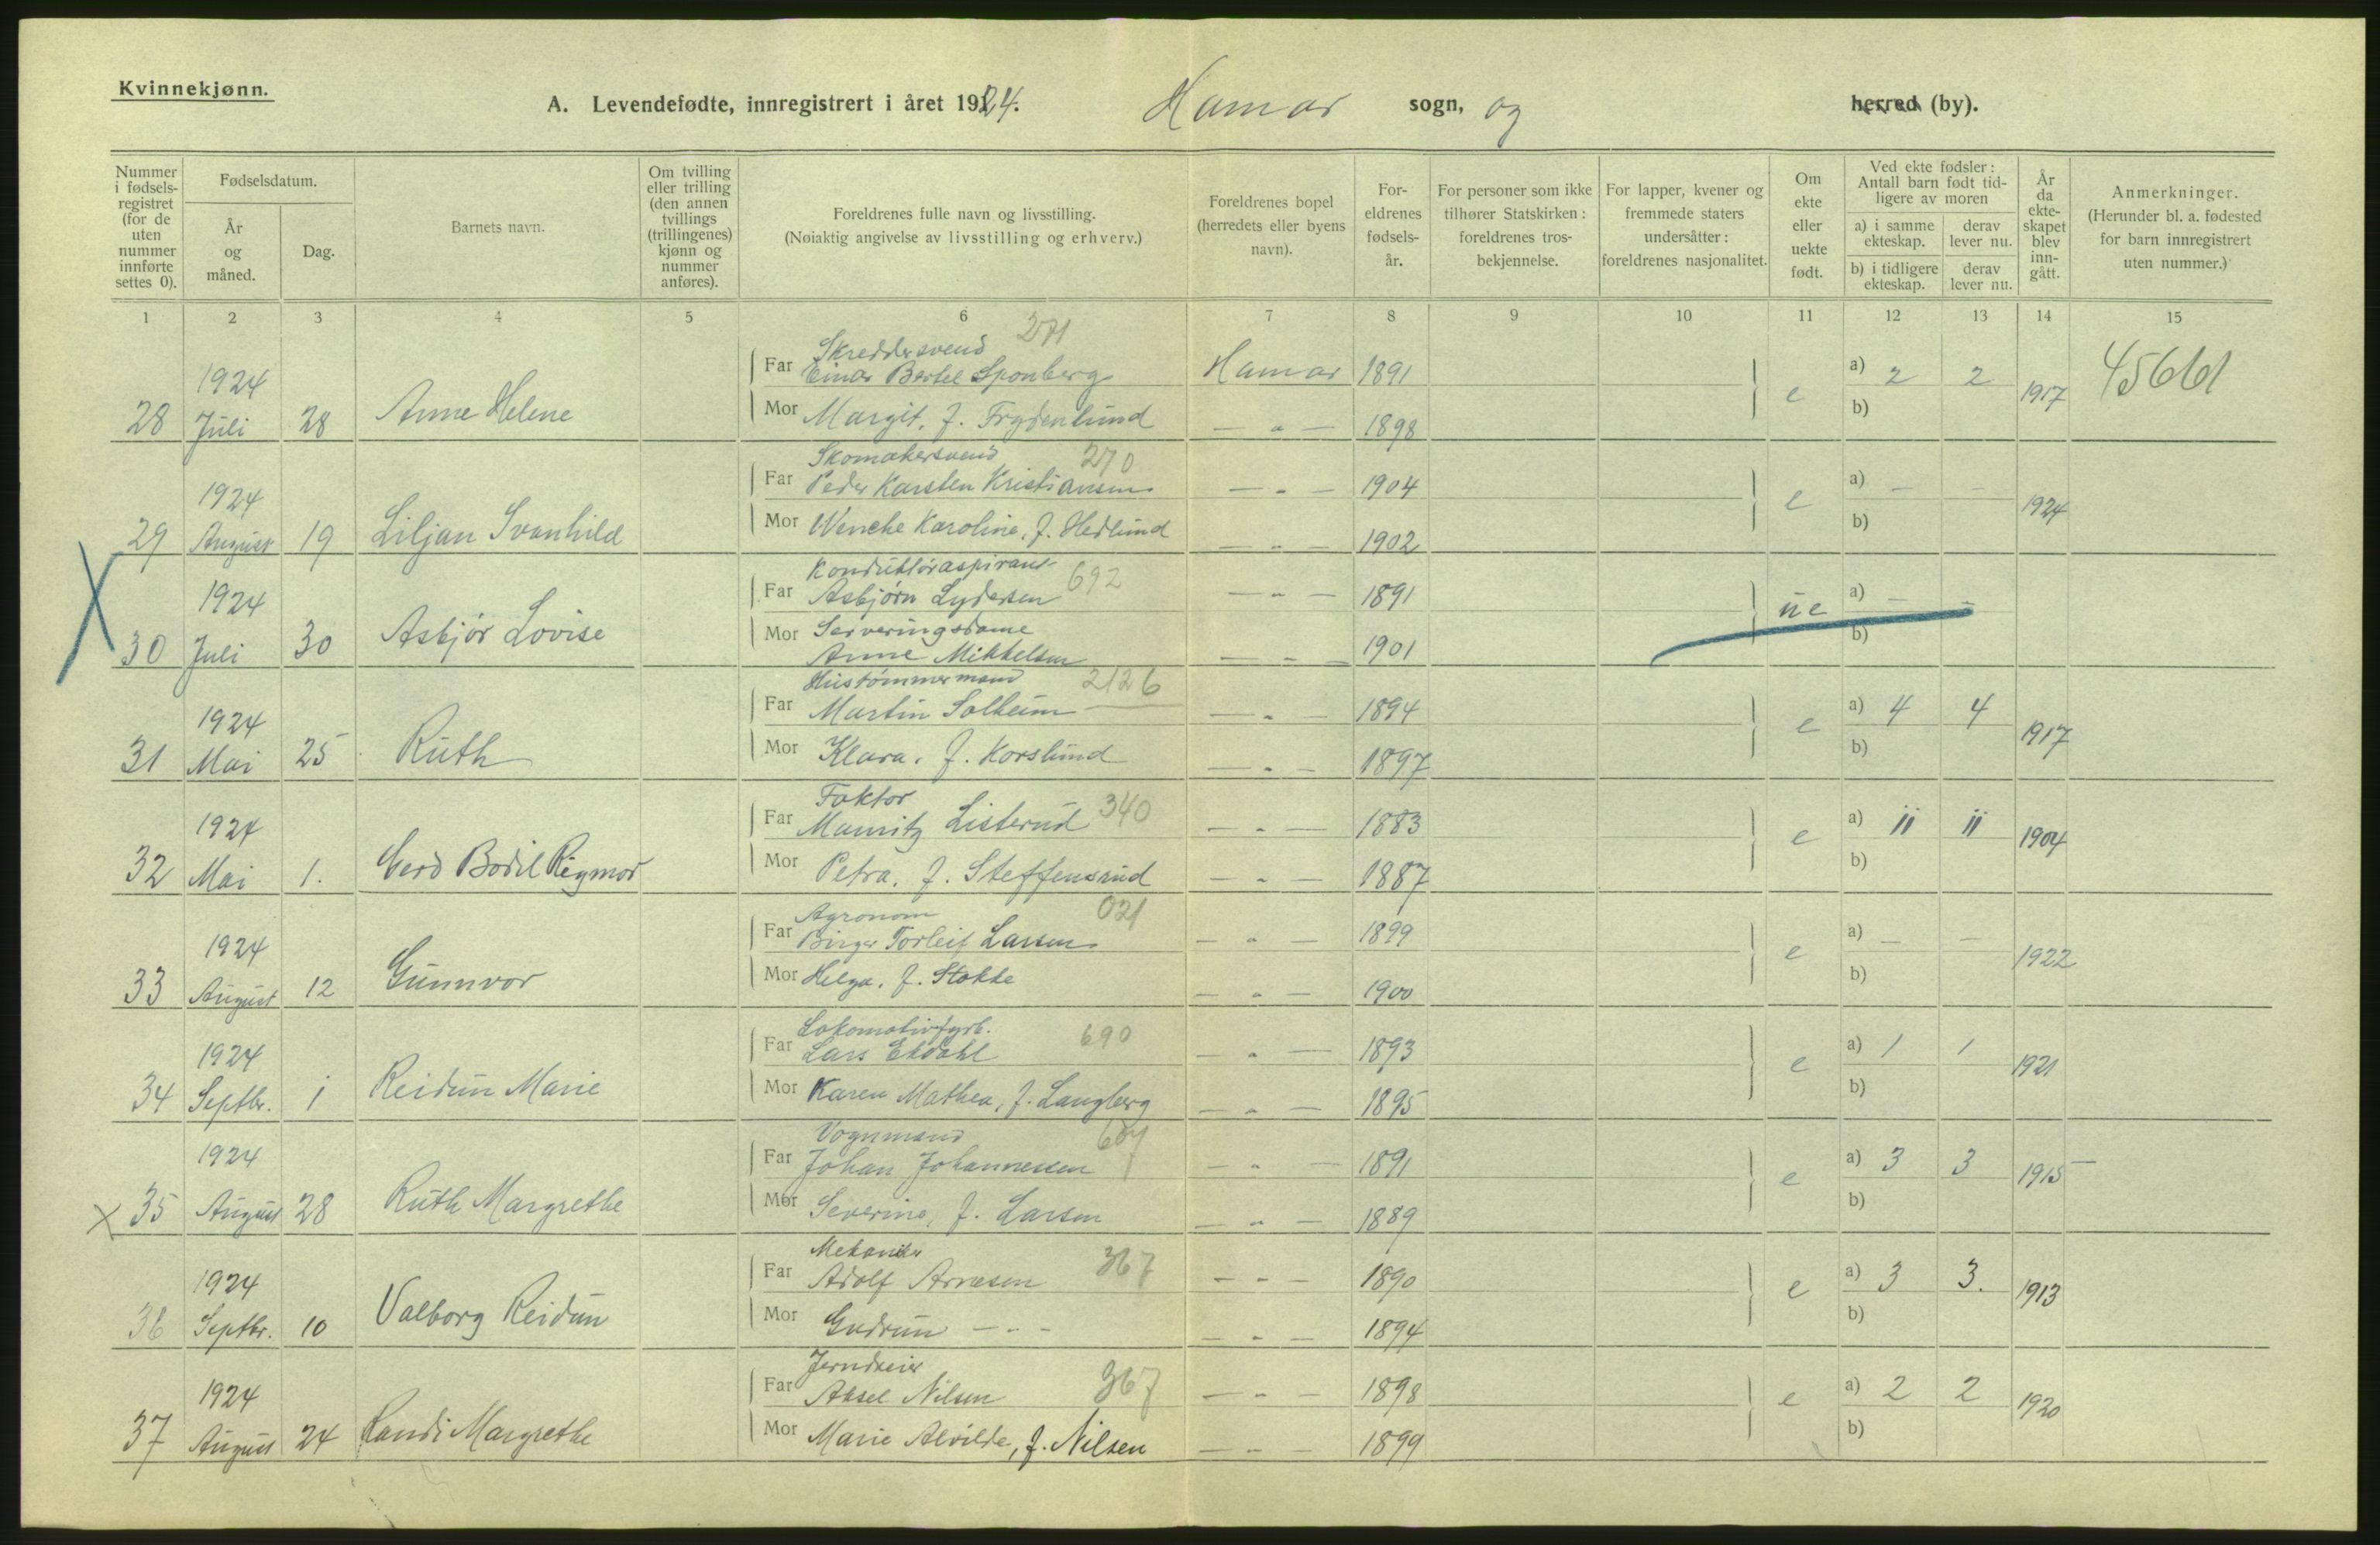 Kvinnekjønn.
A. Levendefødte, innregistrert i året 1924. Hamar sogn, og herred (by).
Nummer i fødsels-registret (for de uten nummer innførte settes 0).
Fødselsdatum.
År og måned.
Dag.
Barnets navn.
Om tvilling eller trilling (den annen tvillings (trillingenes) kjønn og nummer anføres).
Foreldrenes fulle navn og livsstilling.
(Nøiaktig angivelse av livsstilling og erhverv.)
Foreldrenes bopel (herredets eller byens navn).
For-eldrenes fødsels-år.
For personer som ikke tilhører Statskirken: foreldrenes tros-bekjennelse.
For lapper, kvener og fremmede staters undersåtter: foreldrenes nasjonalitet.
Om ekte eller uekte født.
Ved ekte fødsler: Antall barn født tid-ligere av moren
a) i samme ekteskap. derav lever nu.
b) i tidligere ekteskap. derav lever nu.
År da ekte-skapet blev inn-gått.
Anmerkninger.
(Herunder bl. a. fødested for barn innregistrert uten nummer.)
1 2 3 4 5 6 7 8 9 10 11 12 13 14 15
Skreddersvend 271
1924 Far Einar Bertel Sponberg Hamar 1891 a) 2 2 45661
28 Juli 28 Anne Helene Mor Margit, f. Frydenlund — " — 1898 e b) 1917
Skomakersvend 270
1924 Far Peder Karsten Kristiansen — " — 1904 a) — —
29 August 19 Liljan Svanhild Mor Wenche Karoline, f. Hedlund — " — 1902 e b) 1924
Konduktøraspirant 692
X 1924 Far Asbjørn Lydersen — " — 1891 a) — —
30 Juli 30 Asbjør Lovise Mor Serveringsdame
Anne Mikkelsen — " — 1901 ue b)
Hustømmermand 2126
1924 Far Martin Solheim — " — 1894 a) 4 4
31 Mai 25 Ruth Mor Klara, f. Korslund — " — 1897 e b) 1917
Faktor 340
1924 Far Mauritz Listerud — " — 1883 a) 11 11
32 Mai 1. Gerd Bodil Rigmor Mor Petra, f. Steffensrud — " — 1887 e b) 1904
Agronom 021
1924 Far Birger Torleif Larsen — " — 1899 a) — —
33 August 12 Gunnvor Mor Helga, f. Stokke — " — 1900 e b) 1922
Lokomotivfyrb. 690
1924 Far Lars Ekdahl — " — 1893 a) 1 1
34 Septbr. 1 Reidun Marie Mor Karen Mathea, f. Langberg — " — 1895 e b) 1921
Vognmand
1924 Far Johan Johannessen — " — 1891 a) 3 3
X 35 August 28 Ruth Margrethe Mor Severine, f. Larsen — " — 1889 e b) 1915
Mekaniker 367
1924 Far Adolf Arnesen — " — 1890 a) 3 3.
36 Septbr. 10 Valborg Reidun Mor Gudrun — " — — " — 1894 e b) 1913
Jerndreier 367
1924 Far Aksel Nilsen — " — 1898 a) 2 2
37 August 24 Randi Margrethe Mor Marie Alvilde, f. Nilsen — " — 1899 e b) 1920